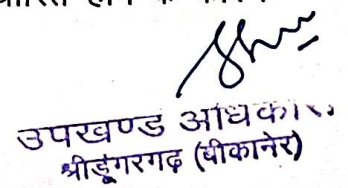 के कारण
उपखण्ड अधिकारी
श्रीडूंगरगढ़ (बीकानेर)